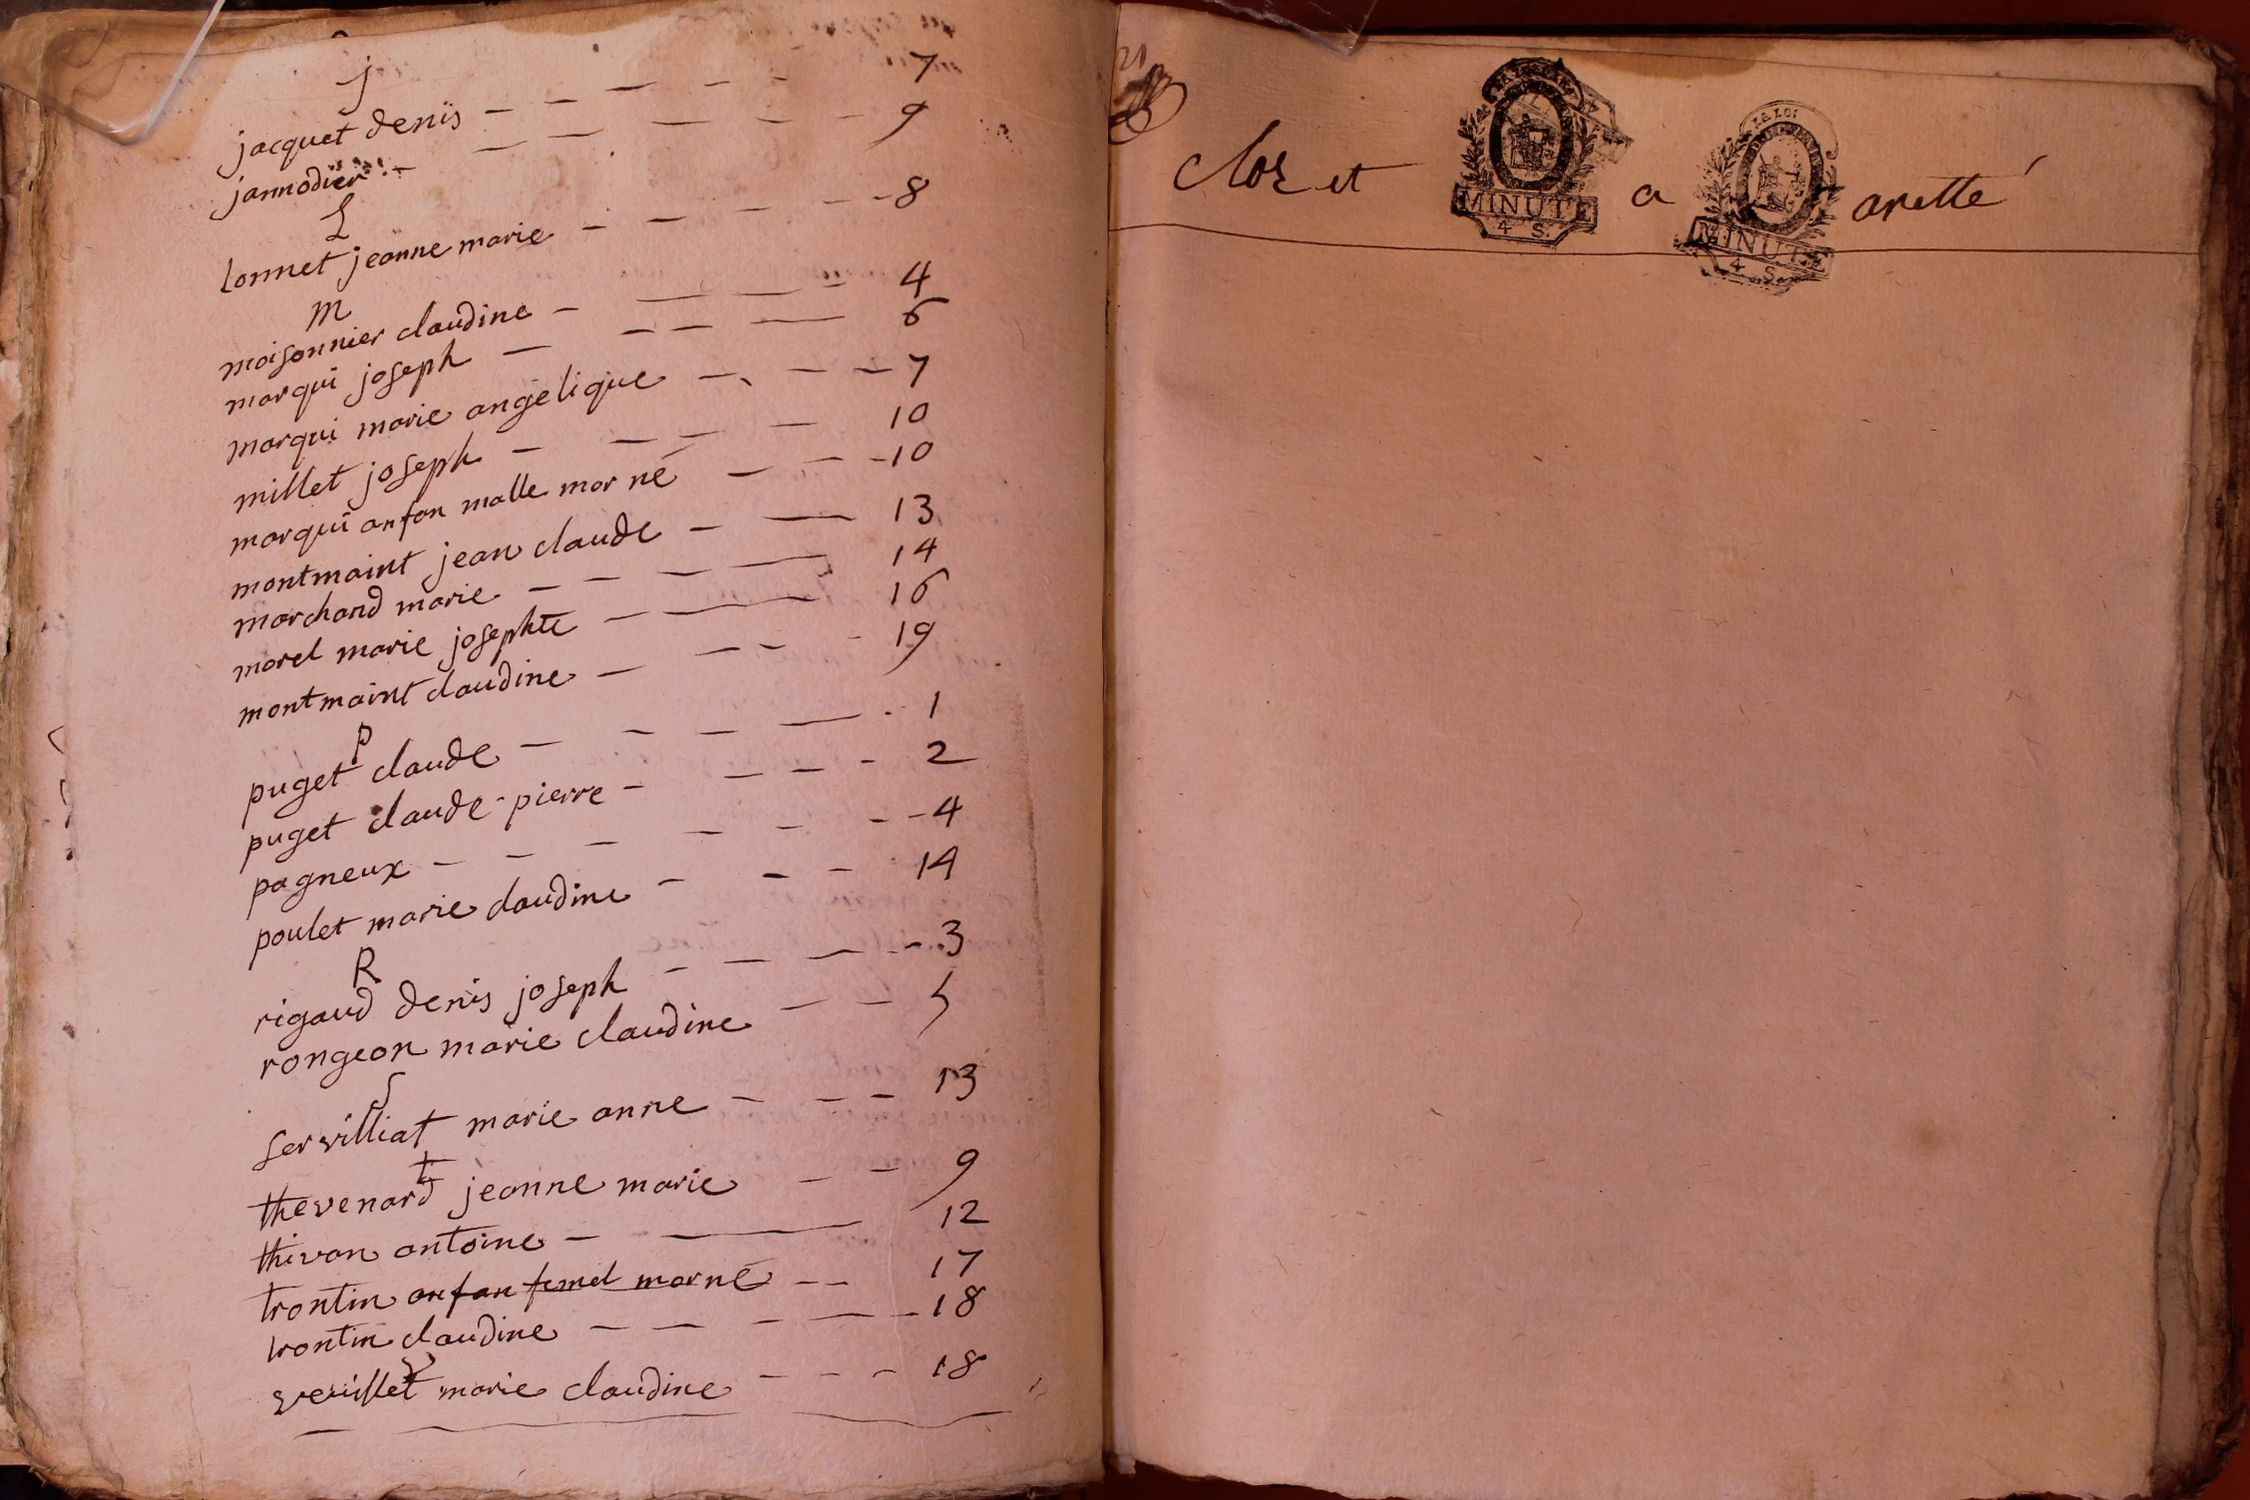 j
jacquet denis - - - - - 7
jannodier - - - - - - 9
L
lonnet jeanne marie - - - - - 8
m
moisonnier claudine - - - - 4
marqui joseph - - - - 6
marqui marie angelique - - - - 7
millet joseph - - - - 10
marqui anfan malle mor né - - - 10
montmaint jean claude - - 13
marchand marie - - - - 14
morel marie josephte - - - 16
montmaint claudine - - - - 19
P
puget claude - - - - - 1
puget claude-pierre - - - - - 2
pagneux - - - - - - - 4
poulet marie claudine - - - 14
R
rigaud denis joseph - - - - - 3
rongeon marie claudine - - 5
S
servilliat marie anne - - - 13
t
thevenard jeanne marie - - 9
thivan antoine - - - 12
trontin anfan femel mor né - - 17
trontin claudine - - - - - 18
V
veuillet marie claudine - - - 18
21
clos et a aretté
LA LOI
MINUTE
4 S.
LA LOI
MINUTE
4 S.